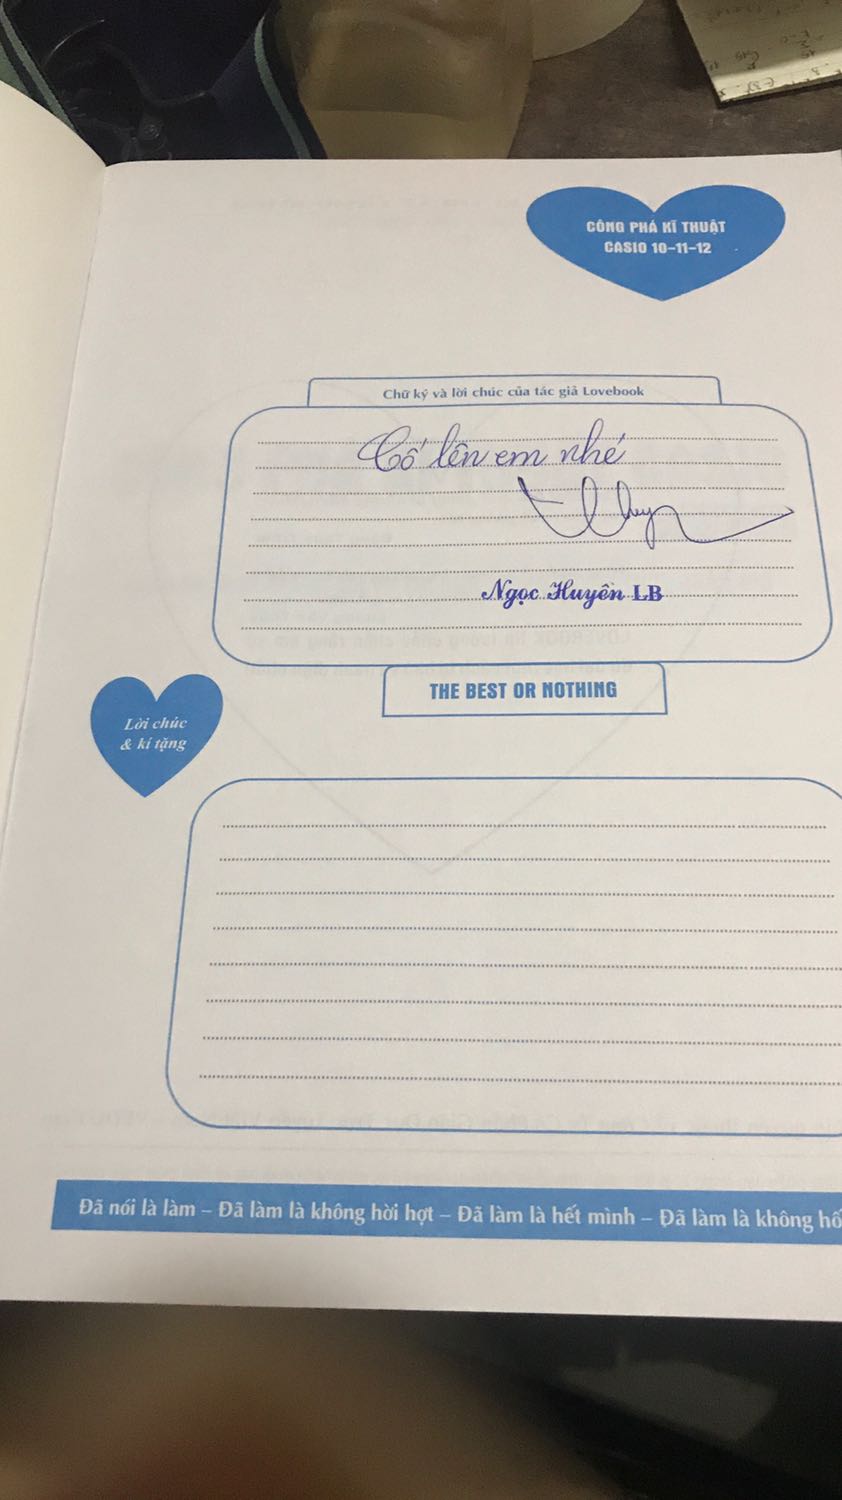 CÔNG PHÁ KĨ THUẬT
CASIO 10-11-12
Chữ ký và lời chúc của tác giả Lovebook
Cố lên em nhé
Ngọc Huyền LB
THE BEST OR NOTHING
Lời chúc
& kí tặng
Đã nói là làm – Đã làm là không hời hợt – Đã làm là hết mình – Đã làm là không hố